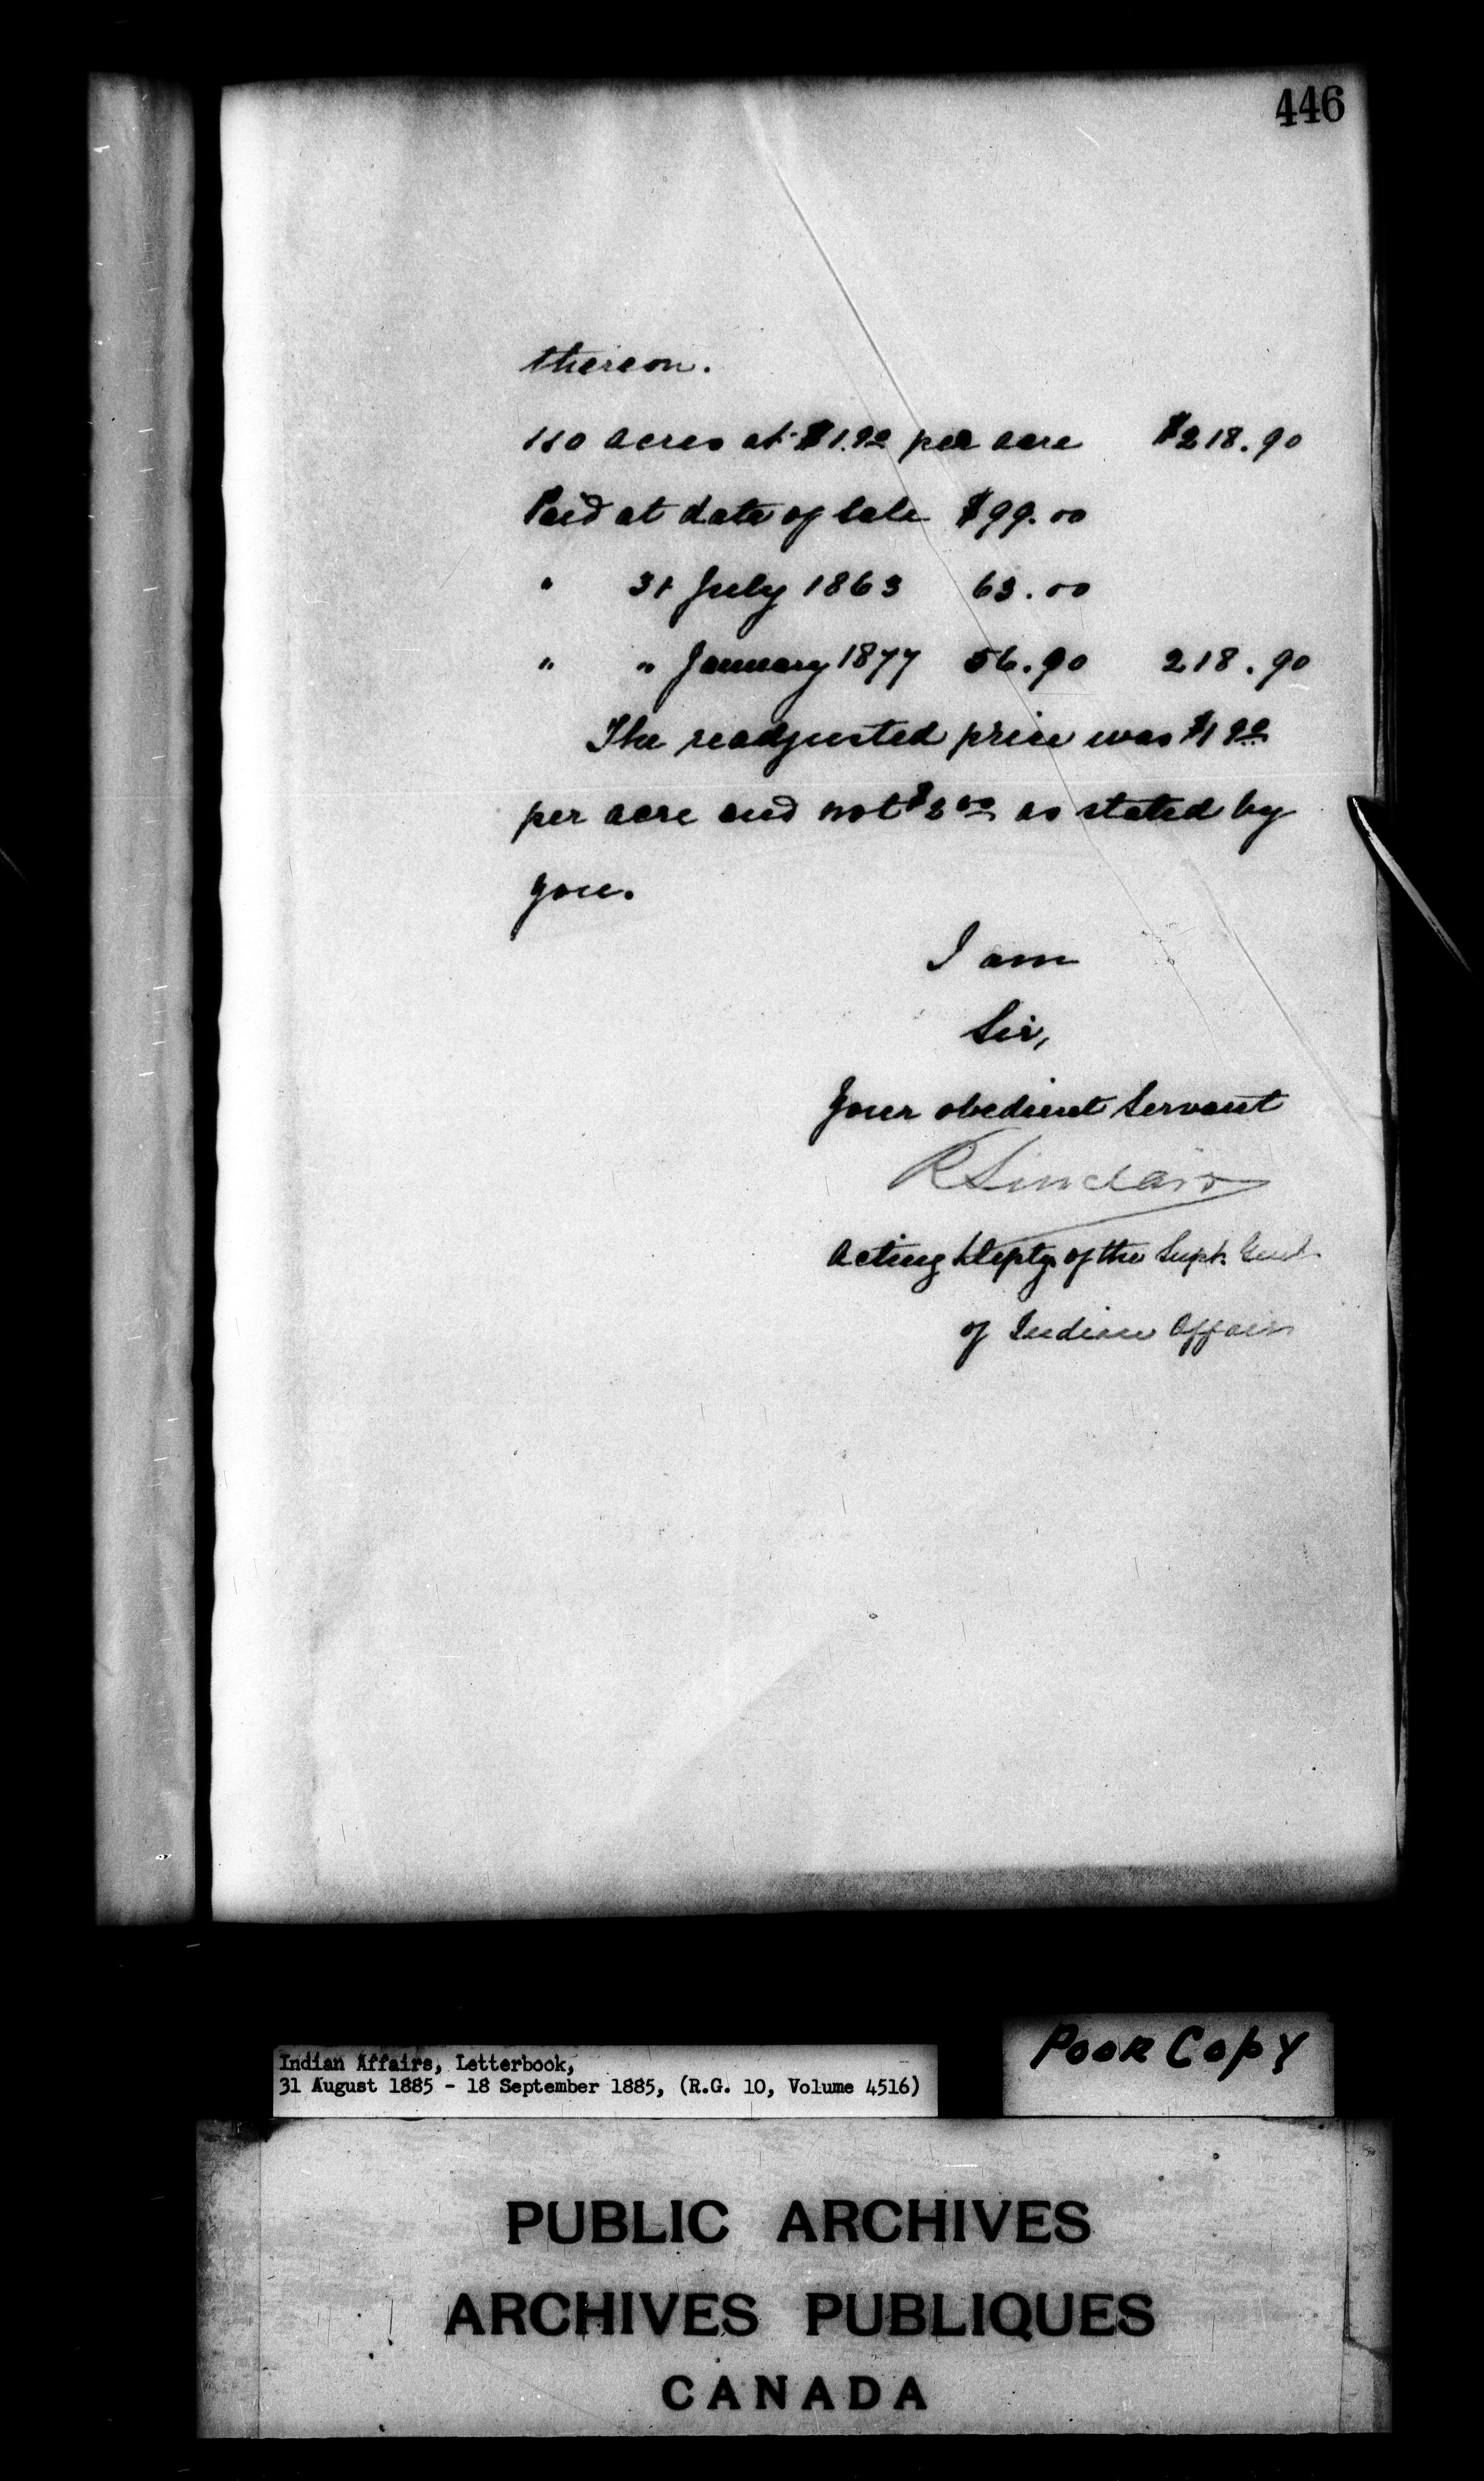 446
thereon.
110 acres at $1.99 per acre $218.90
Paid at date of sale $99.00
" 31 July 1863 63.00
" " January 1877 56.90 218.90
The readjusted price was $1.99
per acre and not $2.00 as stated by
you.
I am
Sir,
Your obedient Servant
R Sinclair
Acting Depty of the Supt. Genl.
of Indian Affairs
Poor Copy
Indian Affairs, Letterbook,
31 August 1885 - 18 September 1885, (R.G. 10, Volume 4516)
PUBLIC ARCHIVES
ARCHIVES PUBLIQUES
CANADA